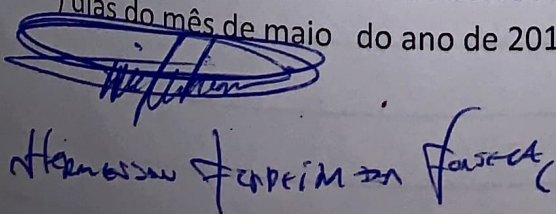 dias do mês de maio do ano de 201
Hermesson Ferreira da Fonseca